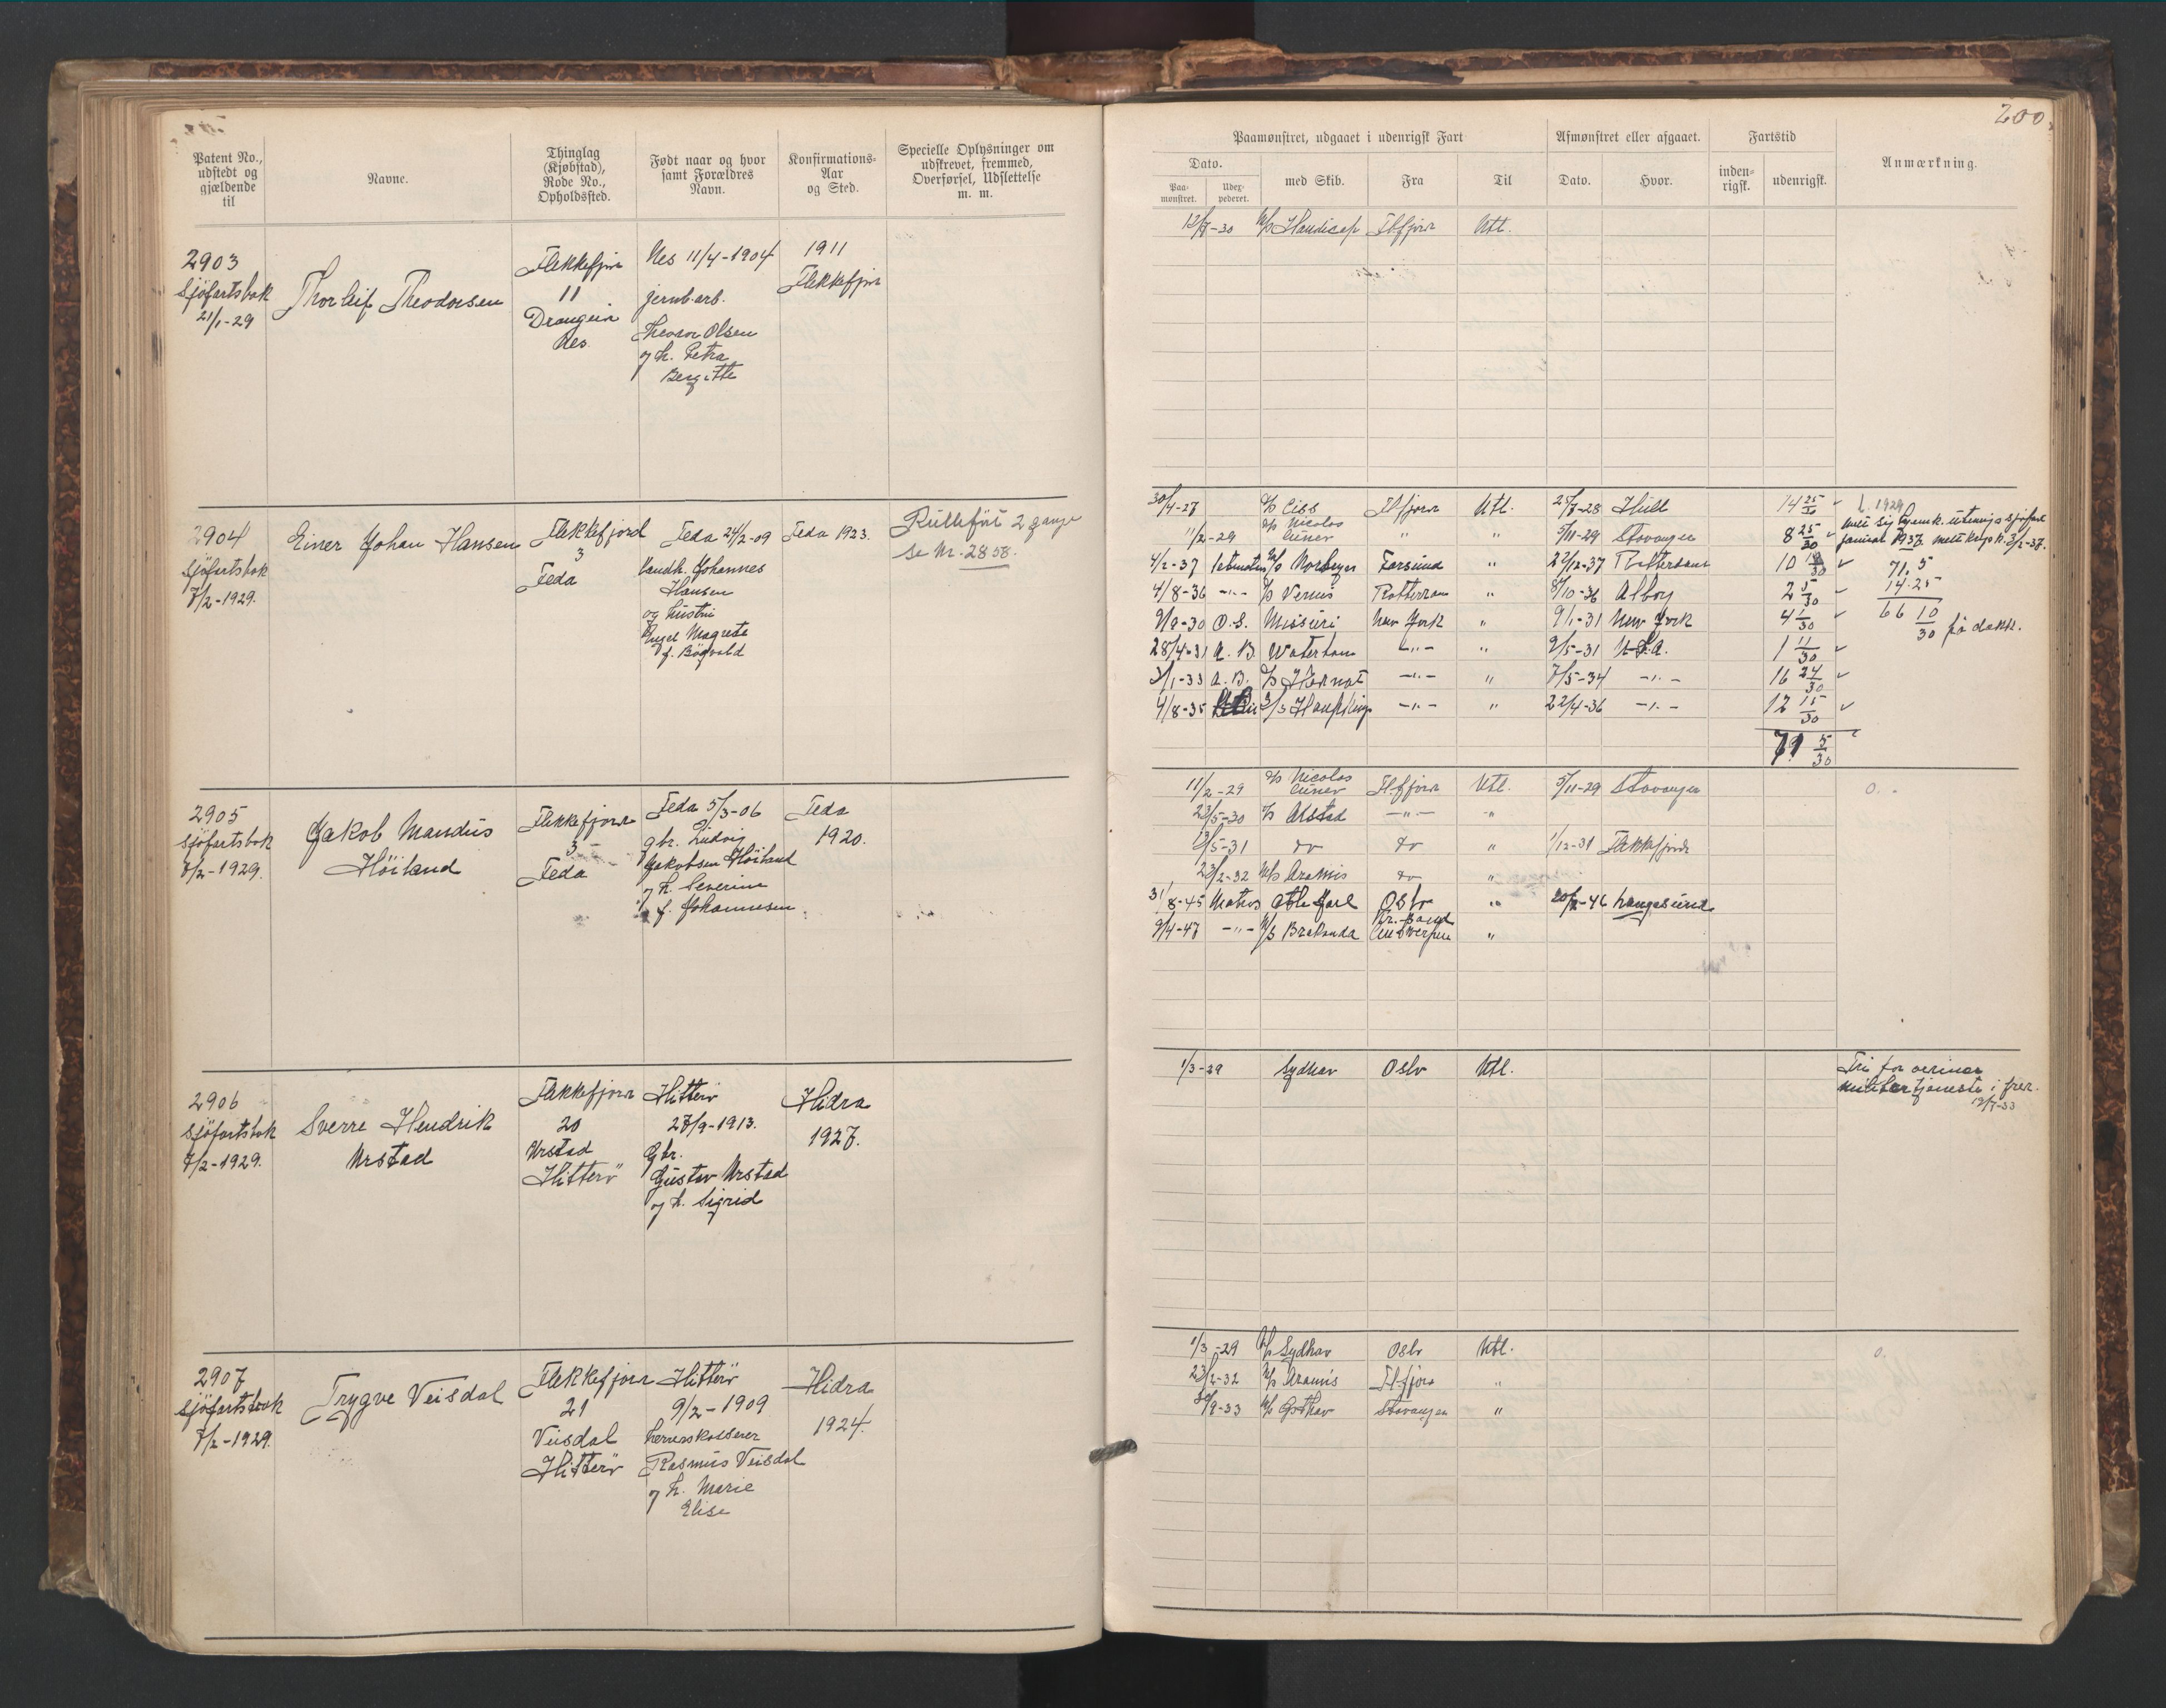 200.
Patent No.,
udstedt og
gjældende
til
Navne.
Thinglag
(Kjøbstad),
Rode No.,
Opholdssted.
Født naar og hvor
samt Forældres
Navn.
Konfirmations-
Aar
og Sted.
Specielle Oplysninger om
udskrevet, fremmed,
Overførsel, Udslettelse
m. m.
Paamønstret, udgaaet i udenrigsk Fart
Dato.
Paa-
mønstret.
Udex-
pederet.
med Skib.
Fra
Til
Afmønstret eller afgaaet.
Dato.
Hvor.
Fartstid
inden-
rigsk.
udenrigsk.
Anmærkning.
2903
Sjöfartsbok
21/1-29
Thorleif Theodorsen
Flekkefjor
11
Drangein
Nes.
Nes 11/4-1904
jernb.arb.
Theodor Olsen
og h. Petra
Bergitte
1911
Flekkefjor
12/7-30 M/s Handicap Flfjorr Utl.
2904
Sjöfartsbok
7/2-1929.
Einer Johan Hansen
Flekkefjord
3
Feda
Feda 24/2-09
Landh. Johannes
Hansen
og hustru
Magrete
f. Bögvald
Feda 1923.
Rulleført 2 gange
se Nr. 2858.
30/4-27 Flfjorr Utl. 25/7-28 Hull 14 25/30
11/2-29 D/s Nicolos Cuner " " 5/11-29 Stavanger 8 25/30
4/2-37 Farsund " 22/12-37 Rotterdam 10
4/8-36 -"- D/s Venus Rotterdam " 8/10-36 Alboy 2 5/30
9/9-30 O.S. Missuri New York " 9/1-31 New York 4 1/30
28/4-31 A.B. Waterhan -"- " 9/5-31 U.S.A. 1 11/30
3/1-33 A.B. -"- " 7/5-34 -"- 16 24/30
4/8-35 -"- " 22/4-36 -"- 12 15/30
79 5/30
januar 1937. 3/2-37.
71.5
14.25
66 10/30 på dekk.
2905
Sjöfartsbok
7/2-1929.
Jakob Mandus
Höiland
Flekkefjord
3
Feda
Feda 5/3-06
gbr. Ludvig
Jakobsen Höiland
og h. Severine
f. Johannesen
Feda
1920.
11/2-29 D/s Nicolos Cuner Flfjorr Utl. 5/11-29 Stavanger
23/5-30 D/s Alstad -"- -"
13/5-31 do do " 1/12-31 Flekkefjord
23/2-32 M/s Aramis do "
31/8-45 Matros Ole Jarl Oslo " 20/2-46 haugesund
9/4-47 -"- M/s Brekanda Kr.sand Antwerpen "
2906
Sjöfartsbok
7/2-1929.
Sverre Hendrik
Urstad
Flekkefjord
20
Urstad
Hitterö
Hitterö
27/9-1913.
Gbr.
Gustav Urstad
og h. Sigrid
Hidra
1927.
1/3-29 Sydhav Oslo Utl.
Fri for ordinær
militærtjeneste i fred.
19/7-33
2907
Sjöfartsbok
7/2-1929.
Trygve Veisdal
Flekkefjord
21
Veisdal
Hitterö
Hitterö
9/2-1909
herredskasserer
Rasmus Veisdal
og h. Marie
Elise
Hidra
1924.
1/3-29 M/s Sydhav Oslo Utl.
23/2-32 M/s Aramis Flfjord "
9-33 M/s Gothav Stavanger "